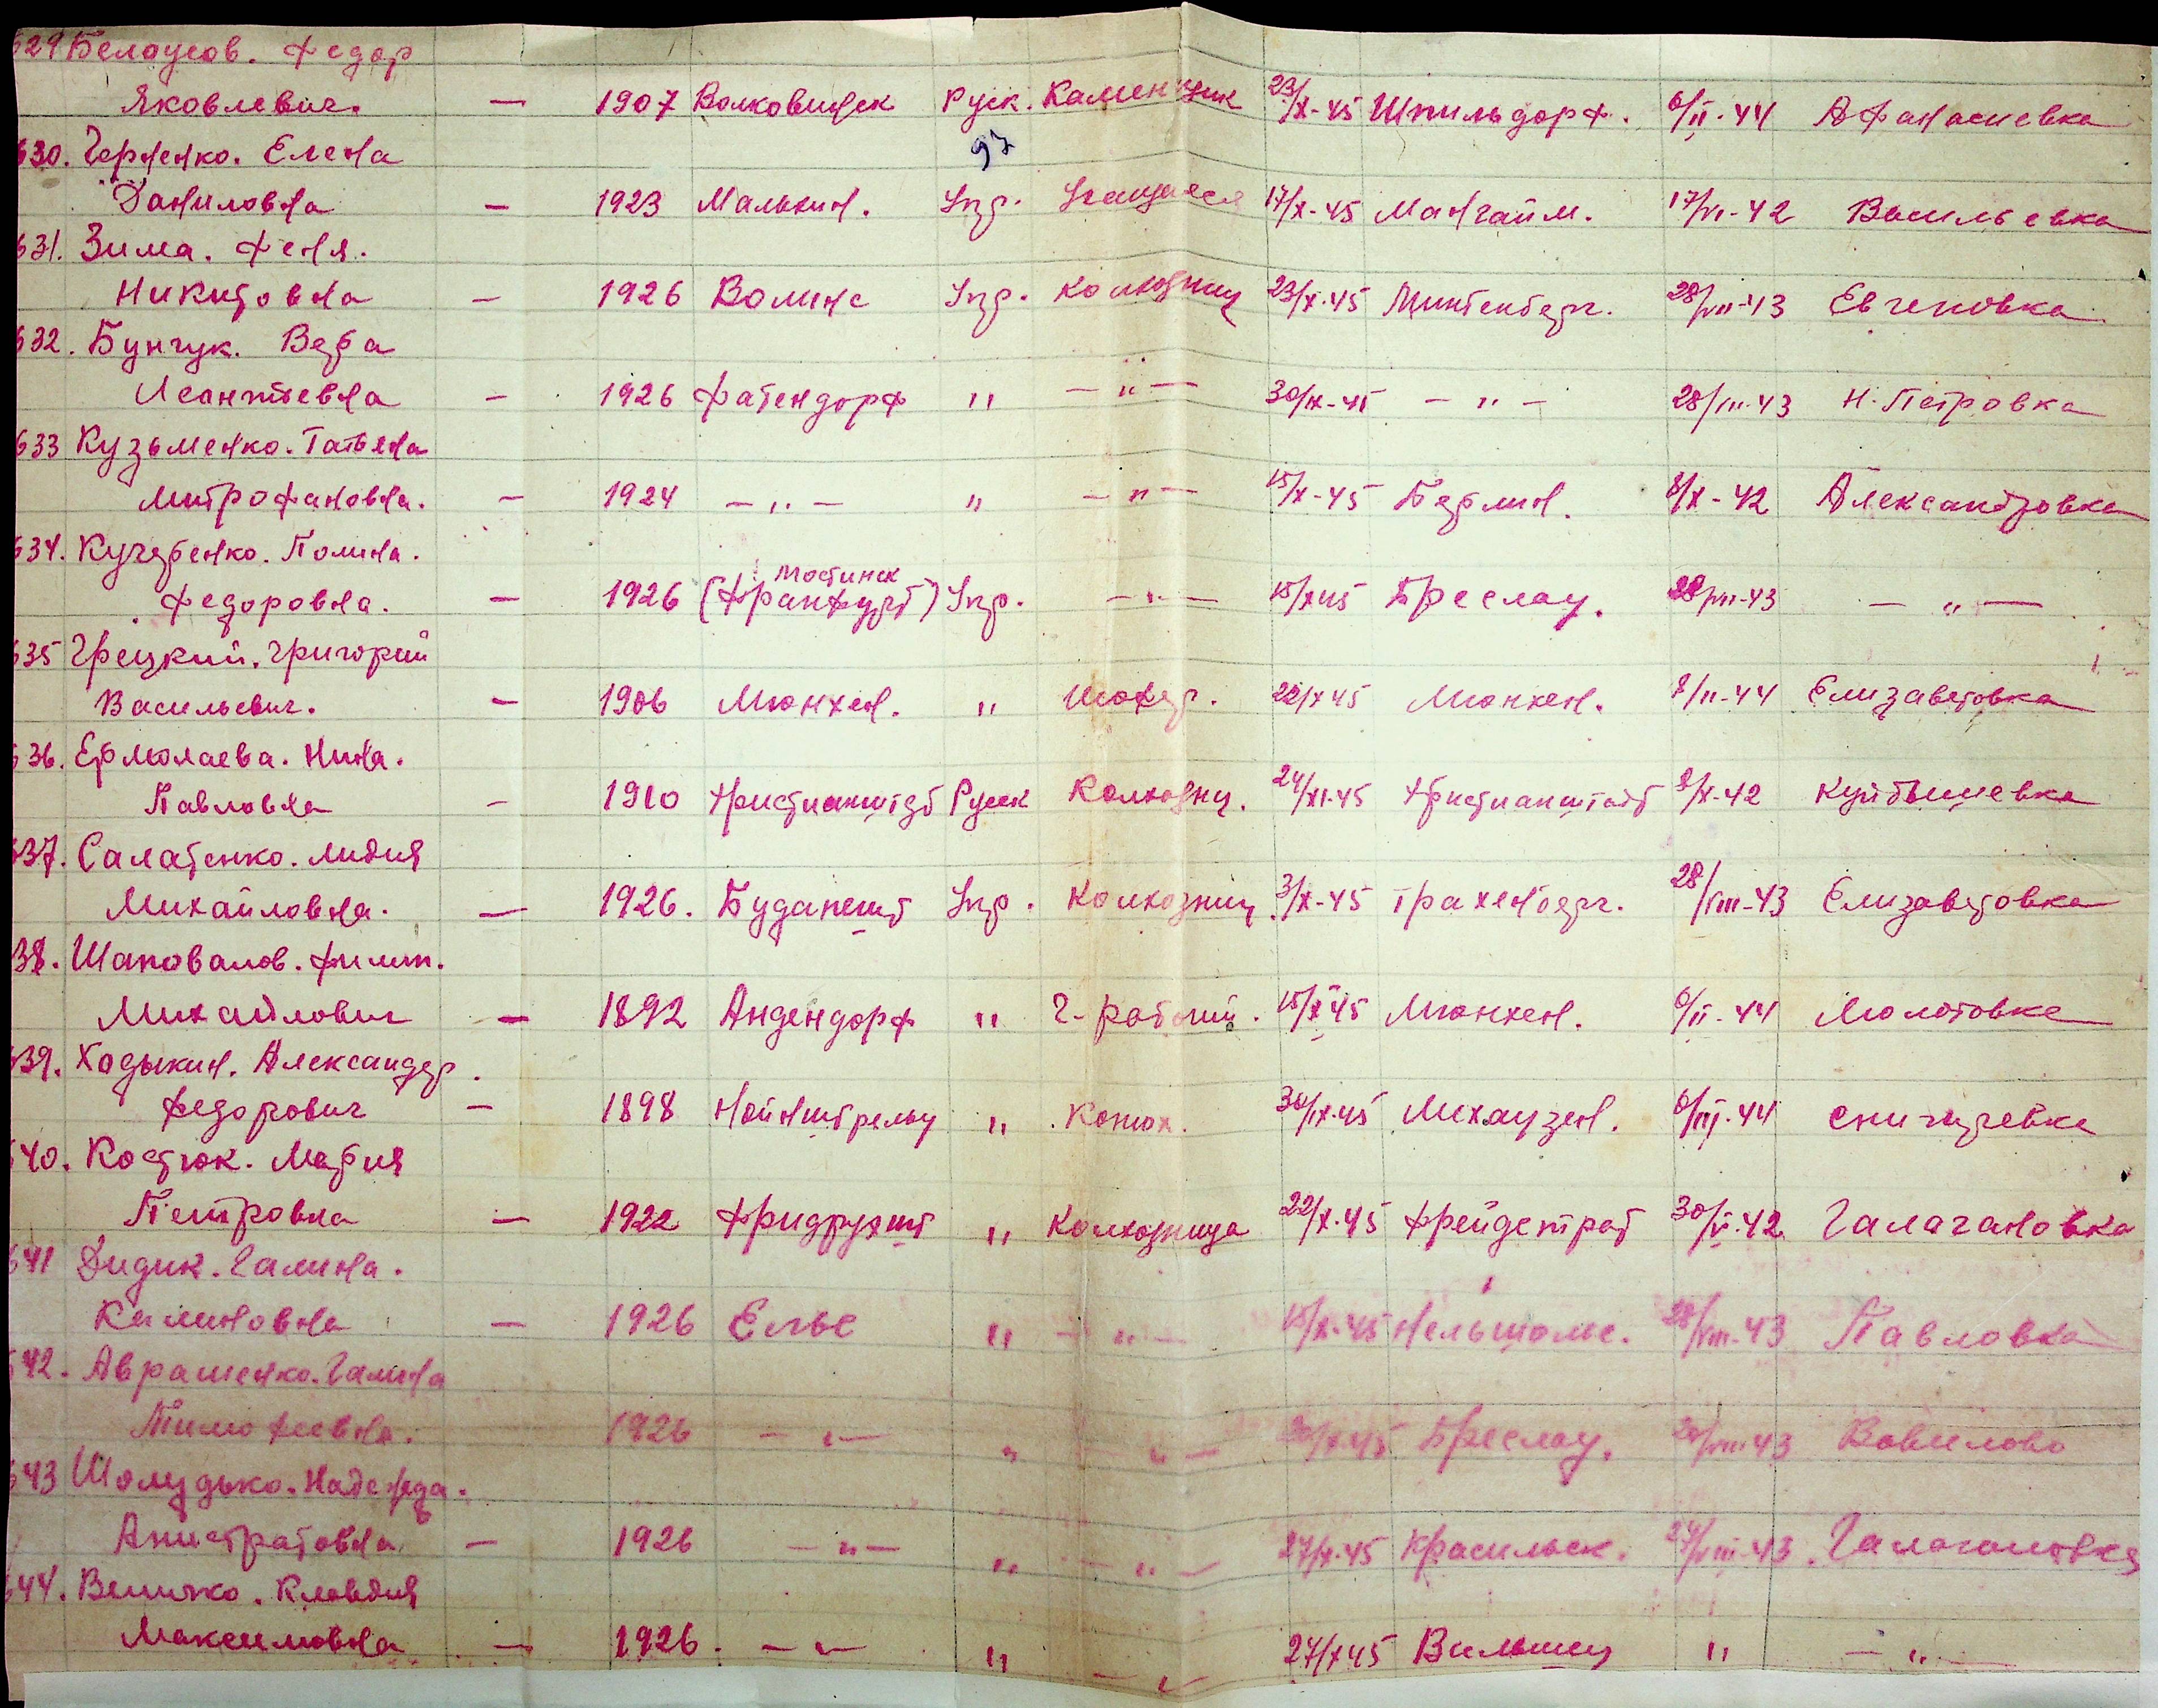 629 Белоусов. Федор
Яковлевич. — 1907 Волковинск Руск. Каменщик 23/X-45 Шпильдорф. 6/II-44 Афанасиевка
97
630. Черненко. Елена
Даниловна — 1923 Малькин. Укр. Учащаяся 17/X-45 Мангайм. 17/VI-42 Васильевка
631. Зима. Феня.
Никитовна — 1926 Волинс Укр. Колхозниц 23/X-45 28/VIII-43 Евгеновка
632. Бунчук. Вера
Леонтьевна — 1926 Фатендорф " — " — 30/IX-45 — " — 28/VIII-43 Н. Петровка
633 Кузьменко. Татьяна
Митрофановна. — 1924 — " — " — " — 15/X-45 Берлин. 8/X-42 Александровка
634. Кучеренко. Полина.
Мостинск
Федоровна. — 1926 (Франфурт) Укр. — " — 15/X45 Бреслау. 28/VIII-43 — " —
635 Грецкий. Григорий
Васильевич. — 1906 Мюнхен. " Шофер. 22/X45 Мюнхен. 8/II-44 Елизаветовка
636. Ермолаева. Нина.
Павловна — 1910 Христианштдт Русск Колхозниц. 24/XI-45 Христианштадт 8/X-42 Куйбышевка
637. Салатенко. Лидия
Михайловна. — 1926. Будапешт Укр. Колхозниц. 3/X-45 Трахенберг. 28/VIII-43 Елизаветовка
638. Шаповалов. Филип.
Михайлович — 1892 Андендорф " Ч-рабочий. 15/X45 Мюнхен. 6/II-44 Молотовка
639. Ходыкин. Александер.
Федорович — 1898 " Конюх. 30/IX-45 Мехаузен. 6/III-44 Снигиревка
640. Костюк. Мария
Петровна — 1922 " Колхозница 22/X-45 30/V-42 Галагановка
641 Дидик. Галина.
Калиновна — 1926 Ельс " — " — 15/X-45 28/VIII-43 Павловка
642. Авраменко. Галина
Тимофеевна. 1926 — " — " — " — Бреслау. 28/VIII43 Вавилово
643 Шолудько. Надежда.
Анистратовна — 1926 — " — " — " — 27/X-45 Красильск. 24/VIII-43. Галагановка
644. Величко. Клавдия
Максимовна — 1926. — " — " — " 27/X45 " — " —